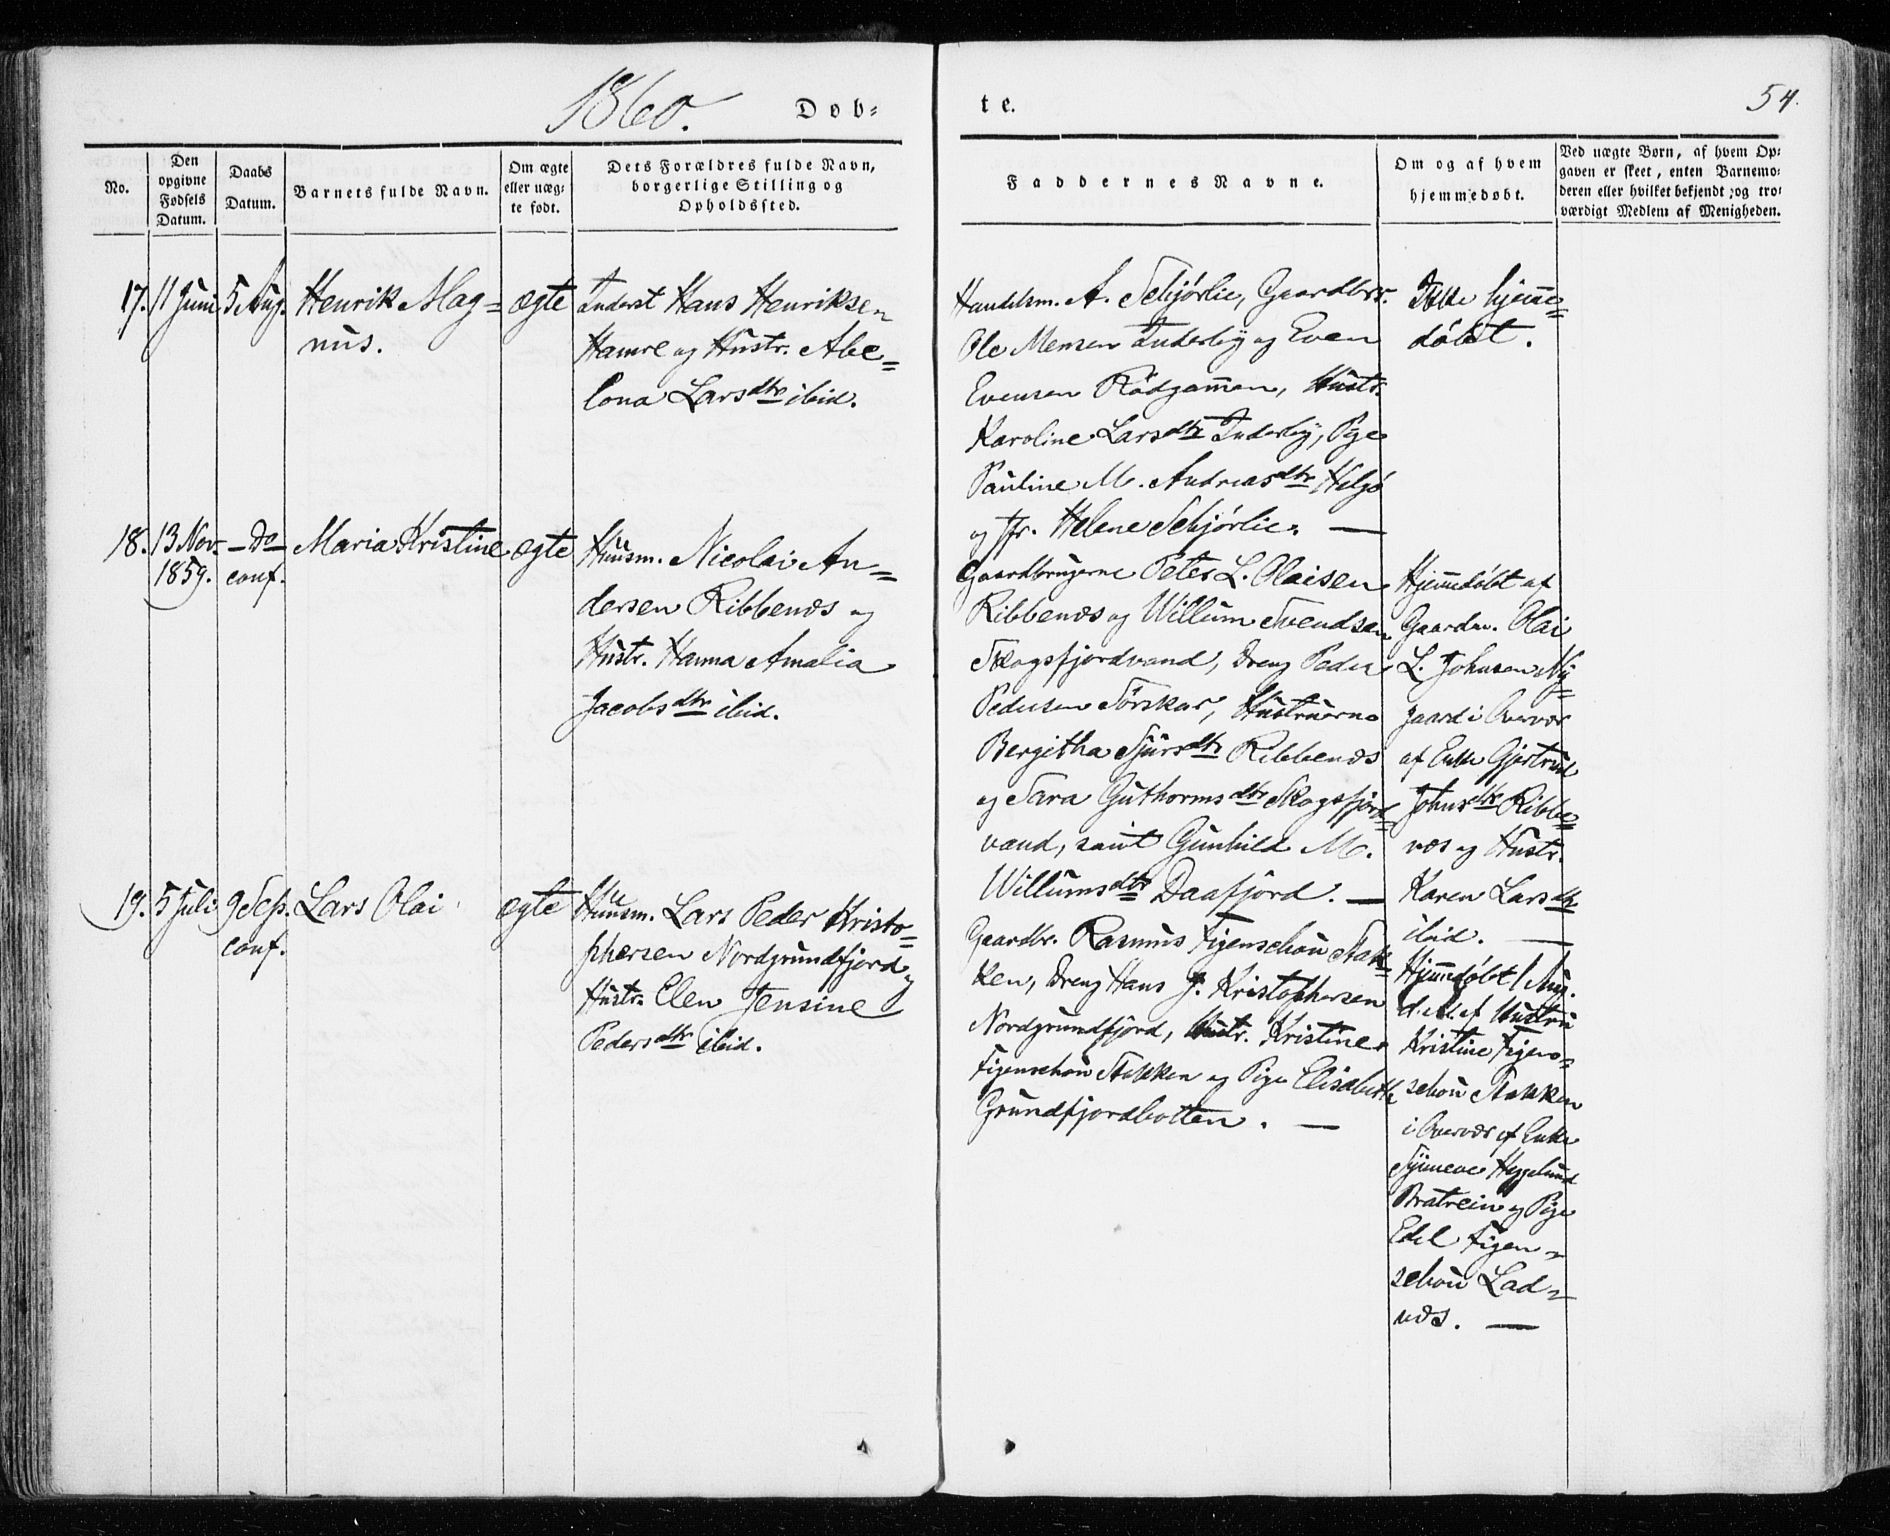 1860.
Døb-
te.
54.
No.
Den
opgivne
Fødsels
Datum.
Daabs
Datum.
Barnets fulde Navn.
Om ægte
eller uæg-
te født.
Dets Forældres fulde Navn,
borgerlige Stilling og
Opholdssted.
Faddernes Navne.
Om og af hvem
hjemmedøbt.
Ved uægte Børn, af hvem Op-
gaven er skeet, enten Barnemo-
deren eller hvilket bekjendt, og tro-
værdigt Medlem af Menigheden.
17. 11 Juni 5 Aug. Henrik Mag= ægte
nus.
Inderst Hans Henriksen
Hamre og Hustr. Abe=
lona Larsdtr ibid.
Handelsm. A. Schjørlie, Gaardbrr.
Ole Mensen Inderby og Even
Evensen Rödgamen, Hustr.
Karoline Larsdtr Inderby, Pige
Pauline M. Andreasdtr Helgö
og Jfr. Helene Schjørlie. —
Ikke hjemme=
döbt.
18. 13 Nov. — Do — Maria Kristine ægte
1859. conf.
Huusm. Nicolai An=
dersen Ribbenæs og
Hustr. Hanna Amalia
Jacobsdtr ibid.
Gaardbrugerne Peter L. Olaisen
Ribbenæs og Willum Svendsen
Skogsfjordvand, Dreng Peder
Pedersen Sörskar, Hustruerne
Bergitha Sjursdtr Ribbenæs
og Sara Guthormsdtr Skogsfjord=
vand, samt Gunhild M.
Willumsdtr Daafjord. —
Hjemmedøbt af
Gaardm. Olai
L. Johnsen Ny=
gaard i Overvær
af Enke Gjertrud
Johnsdtr Ribbe=
næs og Hustr.
Karen Larsdtr
ibid. —
19. 5 Juli 9 Sept. Lars Olai ægte
conf.
Huusm. Lars Peder Kristo=
phersen Nordgrundfjord og
Hustr. Elen Jensine
Pedersdtr ibid.
Gaardbr. Rasmus Figenschou Stak=
ken, Dreng Hans J. Kristophersen
Nordgrundfjord, Hustr. Kristine
Figenschou Stakken og Pige Elisabeth
Grundfjordbotten. —
Hjemmedøbt 1 Aug.
d. A. af Hustru
Kristine Figen=
schou Stakken
i Overvær af Enke
Heggelund
Bratrein og Pige
Edel Figen=
schou Lad=
næs. —